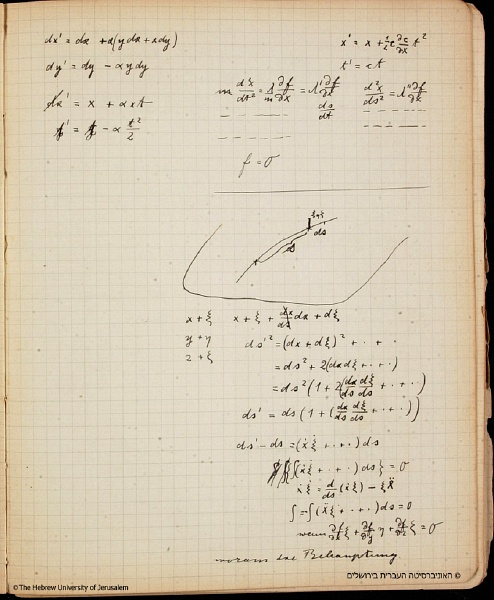 dx' = dx + α(y dx + x dy)
dy' = dy − α y dy
x' = x + α x t
t' = t − α t²/2
x' = x + ½ c ∂c/∂x t²
t' = ct
m d²x/dt² = λ/m ∂f/∂x = λ' ∂f/∂x ds/dt
d²x/ds² = λ'' ∂f/∂x
f = 0
ds
x + ξ
y + η
z + ξ
x + ξ + dx/ds dx + dξ
ds'² = (dx + dξ)² + · · ·
= ds² + 2(dx dξ + · · ·)
= ds² (1 + 2(dx/ds dξ/ds + · · ·))
ds' = ds (1 + (dx/ds dξ/ds + · · ·))
ds' − ds = (ẋ ξ̇ + · · ·) ds
∫(ẋ ξ̇ + · · ·) ds} = 0
ẋ ξ̇ = d/ds (ẋ ξ) − ξ ẍ
∫ = −∫(ẍ ξ + · · ·) ds = 0
wenn ∂f/∂x ξ + ∂f/∂y η + ∂f/∂z ξ = 0
woraus die Behauptung.
© The Hebrew University of Jerusalem
© האוניברסיטה העברית בירושלים